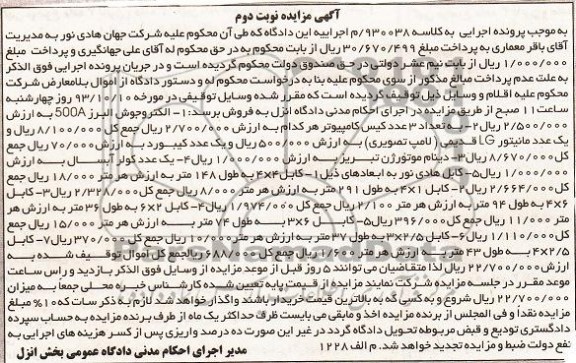 آگهی مزایده نوبت دوم
به موجب پرونده اجرایی به کلاسه ۹۳۰۰۳۸/م اجراییه این دادگاه که طی آن محکوم علیه شرکت جهان هادی نور به مدیریت
آقای باقر معماری به پرداخت مبلغ ۳۰/۶۷۰/۴۹۹ ریال از بابت محکوم به در حق محکوم له آقای علی جهانگیری و پرداخت مبلغ
۱/۰۰۰/۰۰۰ ریال از بابت نیم عشر دولتی در حق صندوق دولت محکوم گردیده است و در جریان پرونده اجرایی فوق الذکر
به علت عدم پرداخت مبالغ مذکور از سوی محکوم علیه بنا به درخواست محکوم له و دستور دادگاه از اموال بلامعارض شرکت
محکوم علیه اقلام و وسایل ذیل توقیف گردیده است که مقرر شده وسایل توقیفی در مورخه ۹۳/۱۰/۱۰ روز چهارشنبه
ساعت ۱۱ صبح از طریق مزایده در اجرای احکام مدنی دادگاه انزل به فروش برسد: ۱- الکتروجوش البرز 500A به ارزش
۲/۵۰۰/۰۰۰ ریال ۲- تعداد ۳ عدد کیس کامپیوتر هر کدام به ارزش ۲/۷۰۰/۰۰۰ ریال جمع کل ۸/۱۰۰/۰۰۰ ریال و
یک عدد مانیتور LG قدیمی (لامپ تصویری) به ارزش ۵۰۰/۰۰۰ ریال و یک عدد کیبورد به ارزش ۷۰/۰۰۰ ریال جمع
کل ۸/۶۷۰/۰۰۰ ریال ۳- دینام موتورژن تبریز به ارزش ۱/۰۰۰/۰۰۰ ریال ۴- یک عدد کولر آبسال به ارزش
۱/۰۰۰/۰۰۰ ریال ۵- کابل هادی نور به ابعادهای ذیل: ۱- کابل ۴×۴ به طول ۱۴۸ متر به ارزش هر متر ۱۸/۰۰۰ ریال جمع
کل ۲/۶۶۴/۰۰۰ ریال ۲- کابل ۱×۴ به طول ۲۹۱ متر به ارزش هر متر ۸/۰۰۰ ریال جمع کل ۲/۳۲۸/۰۰۰ ریال ۳- کابل
۶×۴ به طول ۹۴ متر به ارزش هر متر ۲/۱۰۰ ریال جمع کل ۱/۹۷۴/۰۰۰ ریال ۴- کابل ۲×۶ به طول ۳۶ متر به ارزش هر
متر ۱۱/۰۰۰ ریال جمع کل ۳۹۶/۰۰۰ ریال ۵- کابل ۶×۳ به طول ۷۴ متر به ارزش هر متر ۱۵/۰۰۰ ریال جمع
کل ۱/۱۱۰/۰۰۰ ریال ۶- کابل ۲/۵×۳ به طول ۳۷ متر به ارزش هر متر ۱۰/۰۰۰ ریال جمع کل ۳۷۰/۰۰۰ ریال ۷- کابل
۲/۵×۴ به طول ۴۳ متر به ارزش هر متر ریال جمع کل ۶۸۸/۰۰۰ ریال جمع کل اموال توقیف شده به
ارزش ۲۲/۷۰۰/۰۰۰ ریال لذا متقاضیان می توانند ۵ روز قبل از موعد مزایده از وسایل فوق الذکر بازدید و راس ساعت
موعد مقرر در جلسه مزایده شرکت نمایند مزایده از قیمت پایه تعیین شده کارشناس خبره محلی جمعا به میزان
۲۲/۷۰۰/۰۰۰ ریال شروع و به کسی که به بالاترین قیمت خریدار باشند واگذار خواهد شد لازم به ذکر سات که ۱۰% مبلغ
مزایده نقدا و فی المجلس از برنده مزایده اخذ و مابقی می بایست ظرف حداکثر یک ماه از طرف برنده مزایده به حساب سپرده
دادگستری تودیع و قبض مربوطه تحویل دادگاه گردد در غیر این صورت ده درصد واریزی پس از کسر هزینه های اجرایی به
نفع دولت ضبط و مزایده تجدید خواهد شد. م الف ۱۲۲۸
مدیر اجرای احکام مدنی دادگاه عمومی بخش انزل